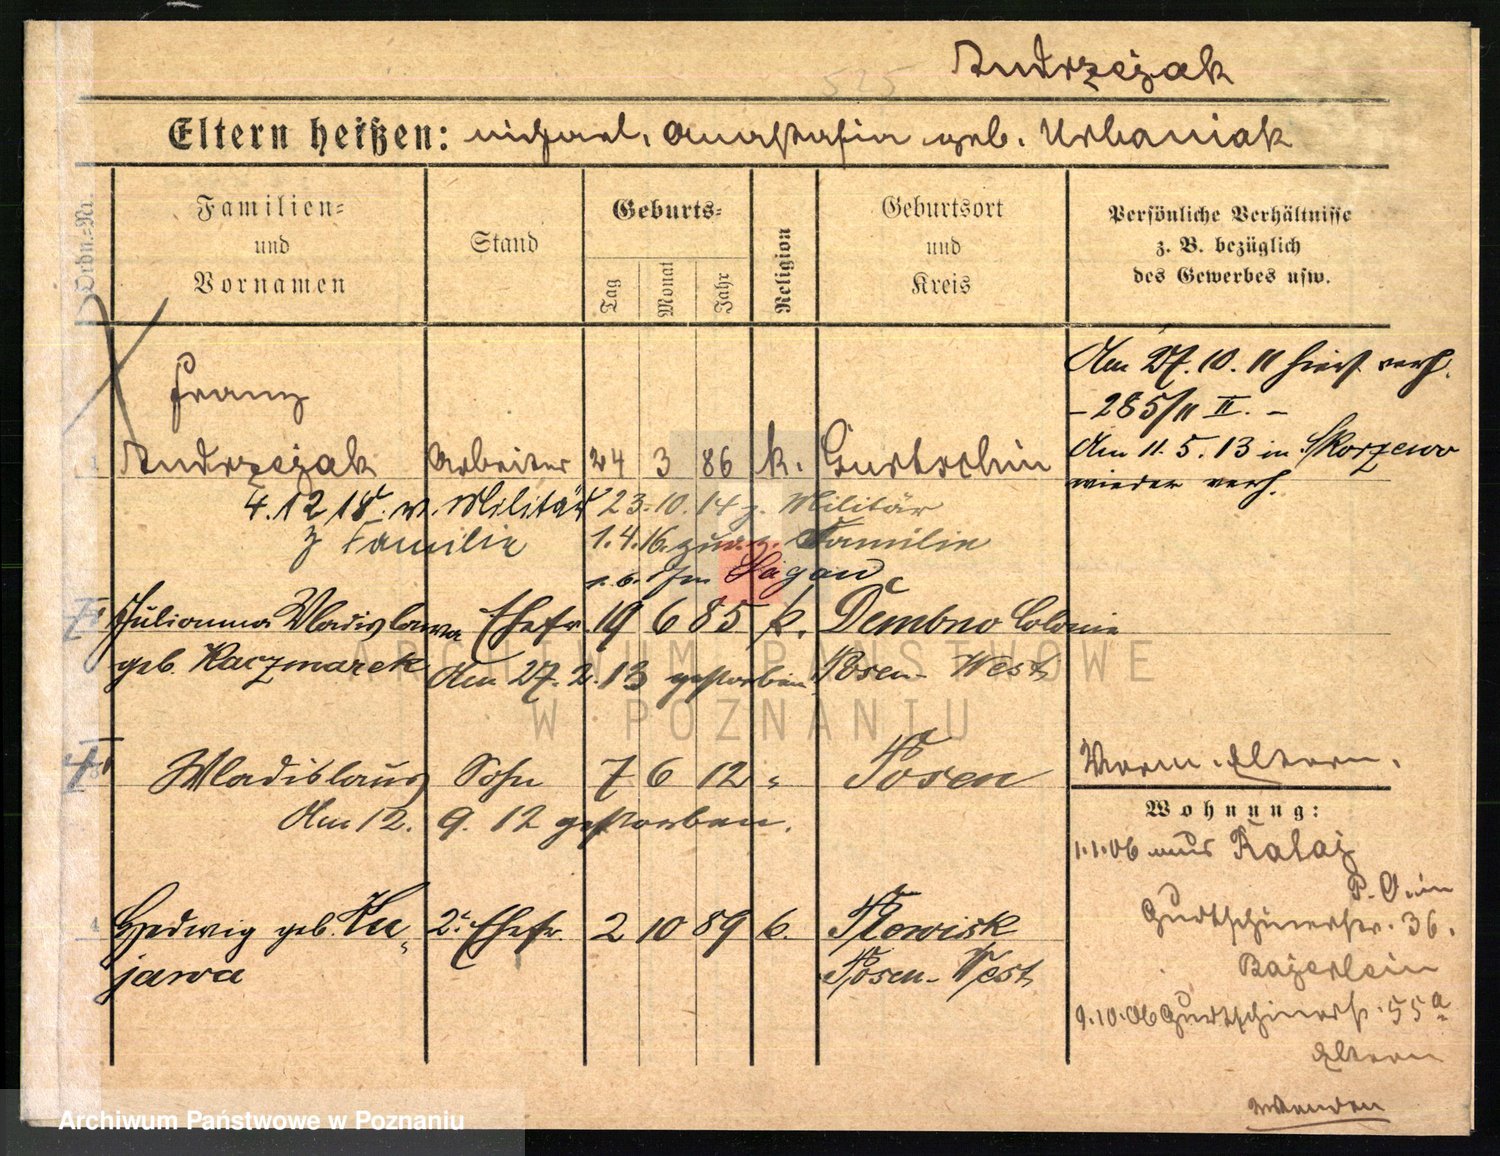 525
Andrzejak
Eltern heißen: Michael, Anastasia geb. Urbaniak
Ordn.-Nr.
Familien-
und
Vornamen
Stand
Geburts-
Tag
Monat
Jahr
Religion
Geburtsort
und
Kreis
Persönliche Verhältnisse
z. B. bezüglich
des Gewerbes usw.
Franz
1 Andrzejak Arbeiter 24 3 86 k. Gurtschin
Am 27. 10. 11 hier verh.
- 285/11 II. -
Am 11. 5. 13 in Skorzewo
wieder verh.
4.12 18. v. Militär 23. 10. 14 z. Militär
z Familie 1. 4. 16. zur. z. Familie
Sagan
Julianna Wladislawa Ehefr. 19 6 85 k. Dembno Colonie
geb. Kaczmarek Am 27. 2. 13 gestorben Posen-West
Wladislaus Sohn 7 6 12 " Posen
Am 12. 9. 12 gestorben.
Verm. Eltern.
4 Hedwig geb. Ku- 2. Ehefr. 2 10 89 k. Plewisk
jawa Posen-West
Wohnung:
1.1.06 aus Rataj
P. O. in
Gurtschinerstr. 36.
Bajerlein
9.10.06 Gurtschinerstr. 55a
Eltern
wenden
ARCHIWUM PAŃSTWOWE
W POZNANIU
Archiwum Państwowe w Poznaniu